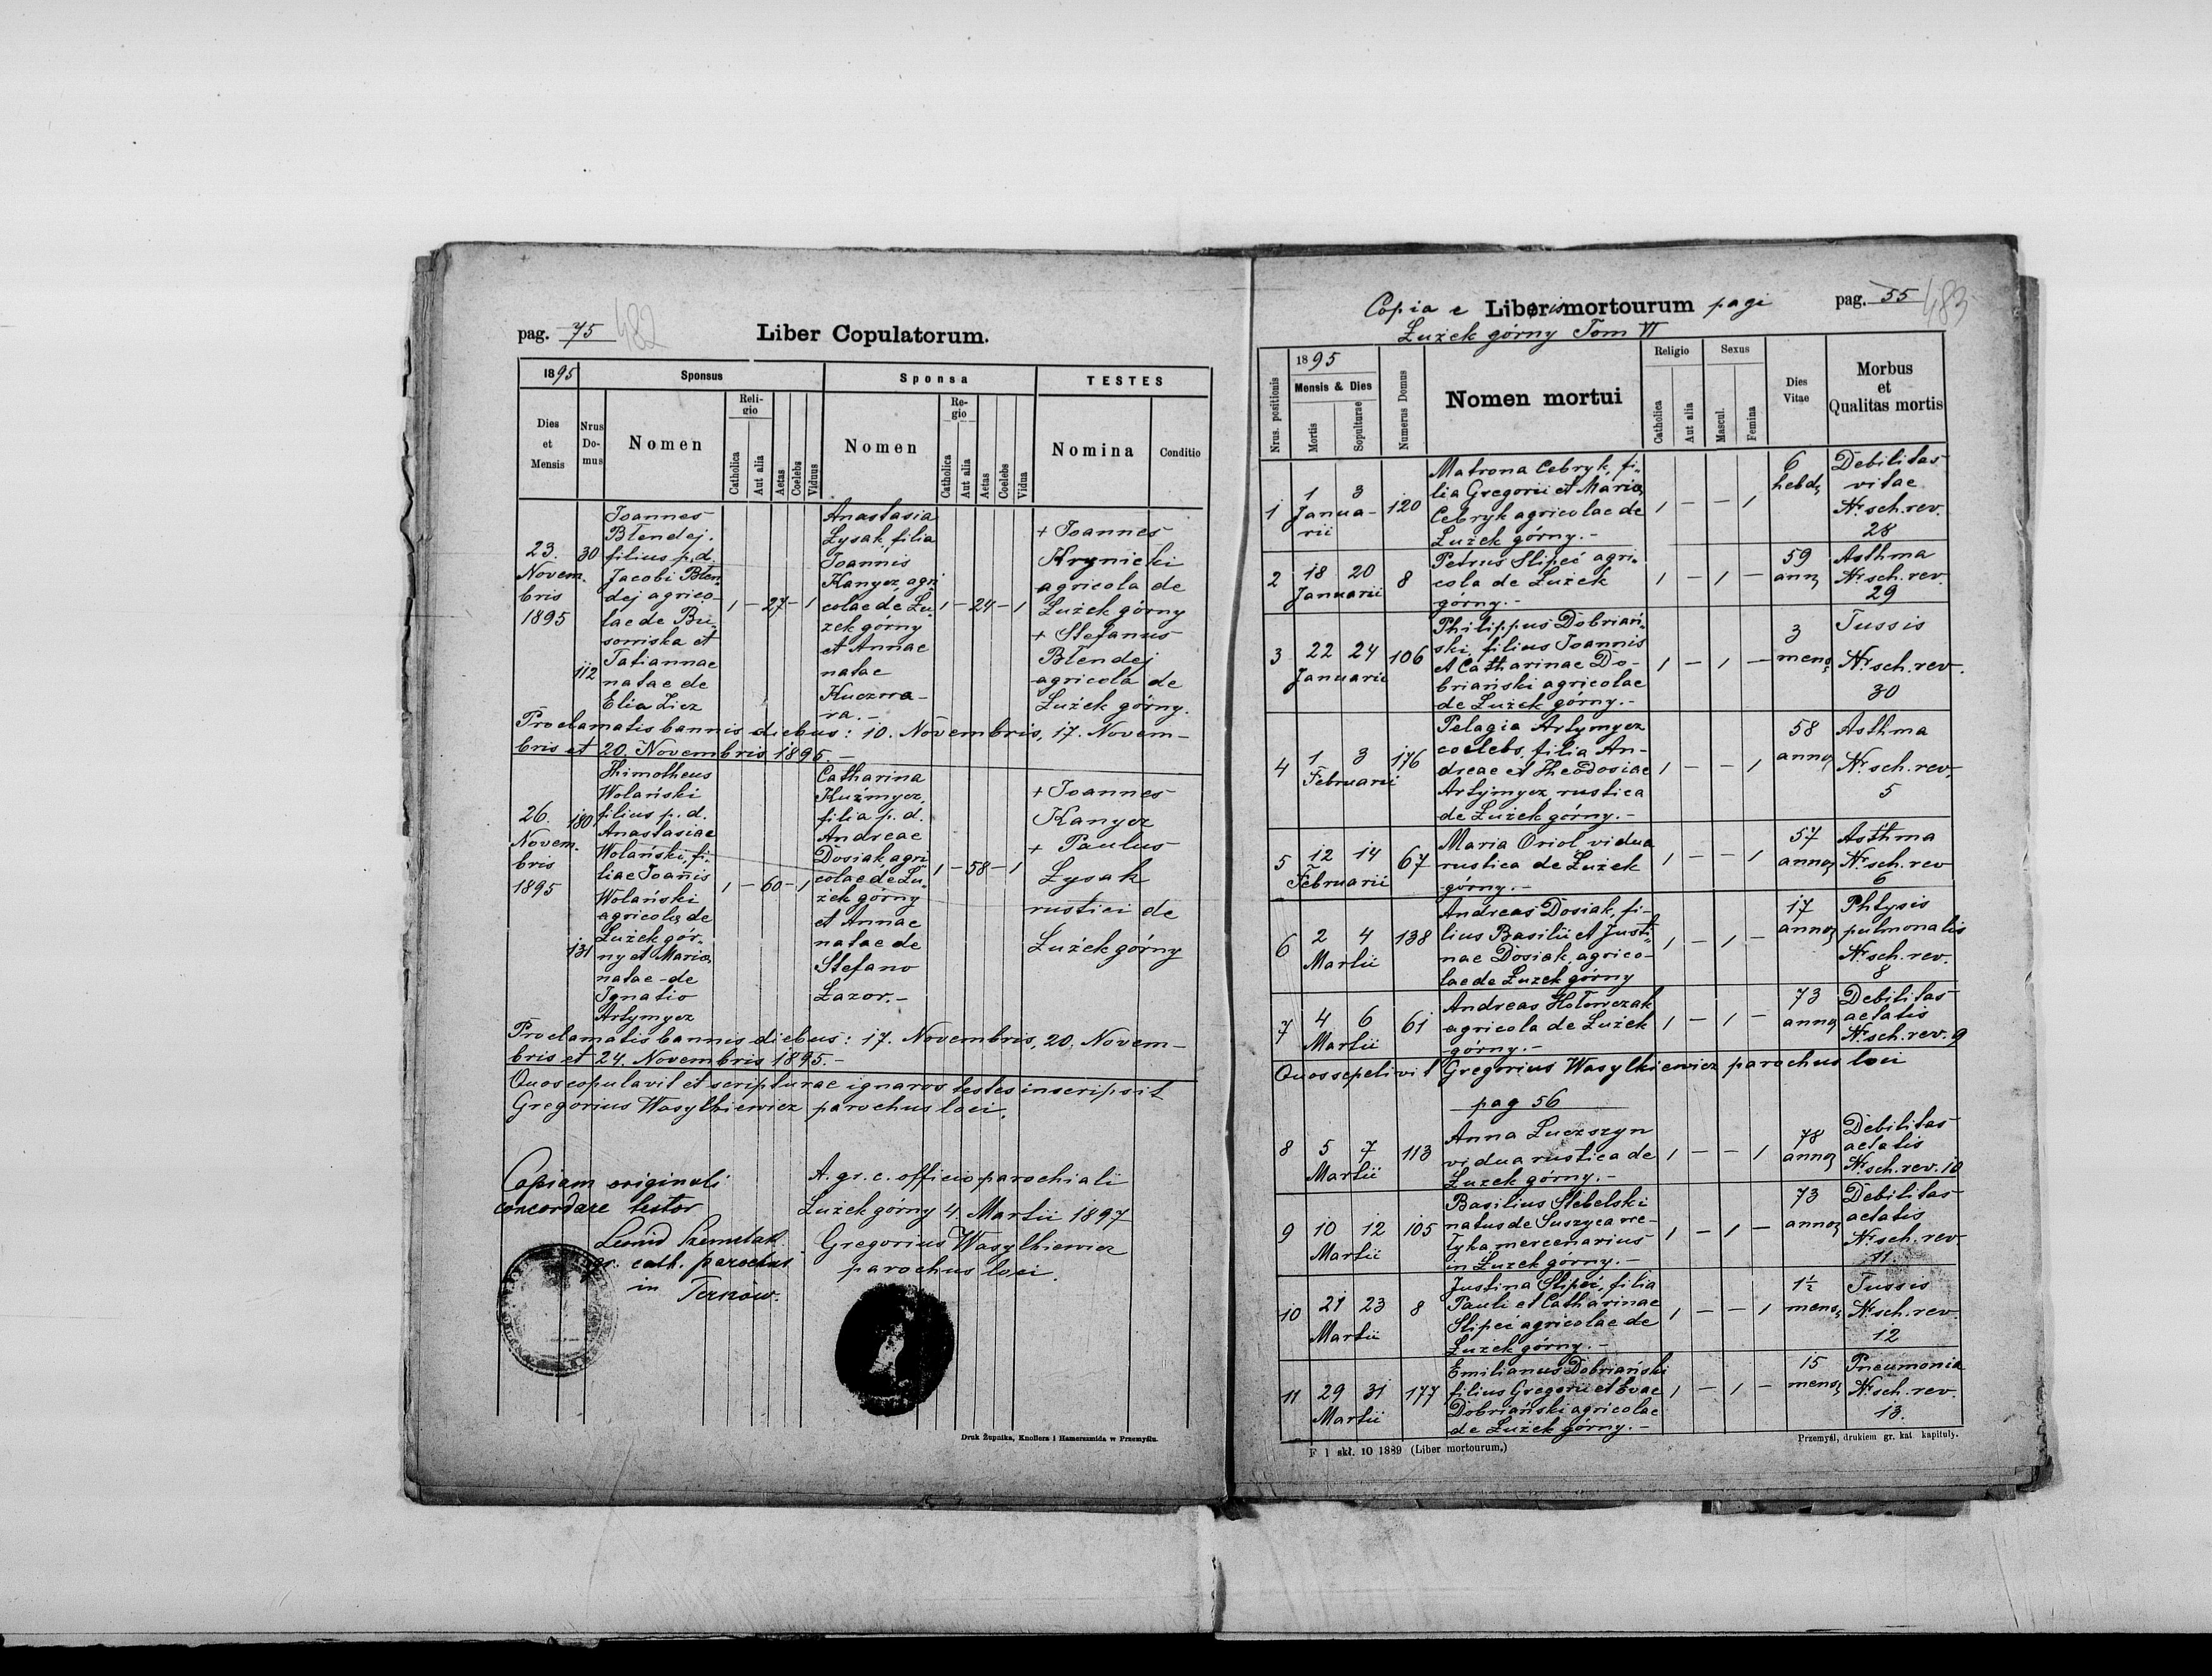 pag. 75 482
Liber Copulatorum.
1895
Sponsus
Sponsa
TESTES
Dies et Mensis
Nrus Do- mus
Nomen
Reli- gio
Catholica
Aut alia
Aetas
Coelebs
Viduus
Nomen
Re- gio
Catholica
Aut alia
Aetas
Coelebs
Vidua
Nomina
Conditio
23.
Novem-
bris
1895
30
112
Joannes
Błendej.
filius p. d.
Jacobi Błen-
dej agrico-
lae de
et
Tatiannae
natae de
Elia
1 – 27 – 1
Anastasia
Łysak, filia
Joannis
Kanycz agri
colae de Łu-
żek górny
et Annae
natae
Kuczwa-
ra.-
1 – 24 – 1
+ Joannes
Krynicki
agricola de
Łużek górny
+ Stefanus
Błendej
agricola de
Łużek górny.
Proclamatis bannis diebus: 10. Novembris, 17. Novem-
bris et 20. Novembris 1895.-
26.
Novem.
bris
1895
180
131
Thimotheus
Wolański
filius p. d.
Anastasiae
Wolański, fi-
liae Joannis
Wolański
agricolae de
Łużek gór-
ny et Mariae
natae de
Ignatio
Artymycz
1 – 60 – 1
Catharina
Kuźmycz,
filia p. d.
Andreae
Dosiak, agri
colae de Łu-
żek górny
et Annae
natae de
Stefano
Łazor.-
1 – 58 – 1
+ Joannes
Kanycz
+ Paulus
Łysak
rustici de
Łużek górny
Proclamatis bannis diebus: 17. Novembris, 20. Novem-
bris et 24. Novembris 1895.-
Quos copulavit et scripturae ignaros testes inscripsit
Gregorius Wasylkiewicz parochus loci.
Copiam originali
concordare testor
gr. cath. parochus
in
A. gr. c. officio parochiali
Łużek górny 4. Martii 1897
Gregorius Wasylkiewicz
parochus loci.
Druk Żupnika, Knollera i Hamersznida w Przemyślu.
Copia e Libris mortourum pagi
Łużek górny Tom VI
pag. 55 483
Nrus. positionis
1895
Mensis & Dies
Mortis
Sepulturae
Numerus Domus
Nomen mortui
Religio
Catholica
Aut alia
Sexus
Mascul.
Femina
Dies Vitae
Morbus et Qualitas mortis
1
1 3
Janua-
rii
120
Matrona Cebryk, fi-
lia Gregorii et Mariae
Cebryk agricolae de
Łużek górny.-
1 – – 1
6
hebd.
Debilitas
vitae
Nr. sch. rev.
28
2
18 20
Januarii
8
Petrus Slipeć agri-
cola de Łużek
górny.-
1 – 1 –
59
ann.
Asthma
Nr. sch. rev.
29
3
22 24
Januarii
106
Philippus Dobriań-
ski, filius Joannis
et Catharinae Do-
briański agricolae
de Łużek górny.-
1 – 1 –
3
mens.
Tussis
Nr. sch. rev.
30
4
1 3
Februarii
176
Pelagia Artymycz
coelebs, filia An-
dreae et Theodosiae
Artymycz, rustica
de Łużek górny.-
1 – – 1
58
anno.
Asthma
Nr. sch. rev.
5
5
12 14
Februarii
67
Maria Oriol vidua
rustica de Łużek
górny.-
1 – – 1
57
anno.
Asthma
Nr. sch. rev
6
6
2 4
Martii
138
Andreas Dosiak, fi-
lius Basilii et Justi-
nae Dosiak, agrico-
lae de Łużek górny
1 – 1 –
17
anno.
Phtysis
pulmonalis
Nr. sch. rev.
8
7
4 6
Martii
61
Andreas Hołowczak
agricola de Łużek
górny.-
1 – 1 –
73
anno.
Debilitas
aetatis
Nr. sch. rev. 9
Quos sepelivit Gregorius Wasylkiewicz parochus loci
pag 56
8
5 7
Martii
113
Anna Łuczszyn
vidua rustica de
Łużek górny.-
1 – – 1
78
anno.
Debilitas
aetatis
Nr. sch. rev. 10
9
10 12
Martii
105
Basilius Stebelski
natus de Suszyca we-
łyka mercenarius
in Łużek górny.-
1 – 1 –
73
anno.
Debilitas
aetatis
Nr. sch. rev.
11.
10
21 23
Martii
8
Justina Slipeć, filia
Pauli et Catharinae
Slipeć agricolae de
Łużek górny.-
1 – – 1
1½
mens.
Tussis
Nr. sch. rev.
12
11
29 31
Martii
177
Emilianus Dobriański
filius Gregorii et Evae
Dobriański agricolae
de Łużek górny.-
1 – 1 –
15
mens.
Pneumonia
Nr. sch. rev.
13.
F 1 skł. 10 1889 (Liber mortourum.)
Przemyśl, drukiem gr. kat. kapituły.